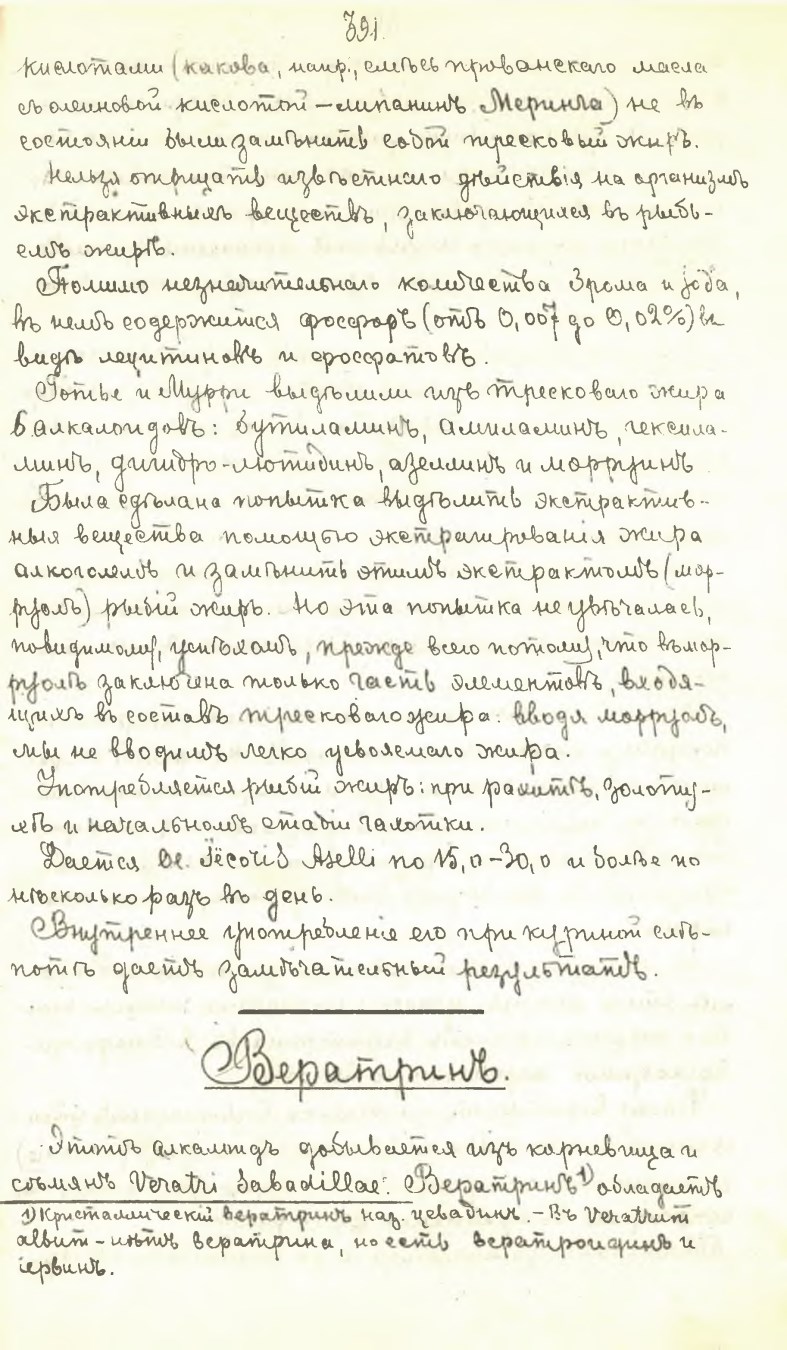 391.
кислотами (какова, напр., смѣсь прованскаго масла
съ олеиновой кислотой – липанинъ Меринга) не въ
состоянiи были замѣнить собой тресковый жиръ.
Нельзя отрицать извѣстнаго дѣйствiя на организмъ
экстрактивныхъ веществъ, заключающихся въ рыбь-
емъ жирѣ.
Помимо незначительнаго количества брома и iода,
въ немъ содержится фосфоръ (отъ 0,007 до 0,02%) въ
видѣ лецитиновъ и фосфатовъ.
Готье и Мурри выдѣлили изъ тресковаго жира
6 алкалоидовъ: бутиламинъ, амиламинъ, гексила-
минъ, дигидро-лютидинъ, азеллинъ и морруинъ
Была сдѣлана попытка выдѣлить экстрактив-
ныя вещества помощью экстрагированiя жира
алкоголемъ и замѣнить этимъ экстрактомъ (мор-
руолъ) рыбiй жиръ. Но эта попытка не увѣчалась,
повидимому, успѣхомъ, прежде всего потому, что въ мор-
руолѣ заключена только часть элементовъ, входя-
щихъ въ составъ тресковаго жира. вводя морруолъ,
мы не вводимъ легко усвояемаго жира.
Употребляется рыбiй жиръ: при рахитѣ, золоту-
хѣ и начальномъ стадiи чахотки.
Дается Ol. Jecoris Aselli по 15,0–30,0 и болѣе по
нѣсколько разъ въ день.
Внутреннее употребленiе его при куриной слѣ-
потѣ даетъ замѣчательный результатъ.
Вератринъ.
Этотъ алкалоидъ добывается изъ корневища и
сѣмянъ Veratri Sabadillae. Вератринъ¹) обладаетъ
1) Кристаллическiй вератринъ наз. цевадинъ. – Въ Veratrum
album – нѣтъ вератрина, но есть вератроидинъ и
iервинъ.